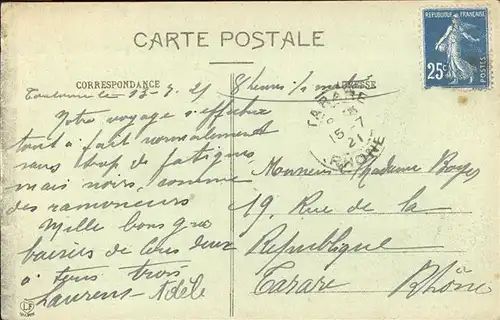 CARTE POSTALE
REPUBLIQUE FRANÇAISE
25c
POSTES
CORRESPONDANCE
ADRESSE
Toulouse le 13-7-21 8 heures 1/2 matin
Notre voyage s'effectue
tout à fait normalement
sans trop de fatigues
mais noirs, comme
des ramoneurs
Mille bons gros
baisers de tous deux
à tous trois
Laurens - Adèle
TARARE
15-7
21
RHONE
Monsieur Madame Boyer
19, Rue de la
République
Tarare Rhône